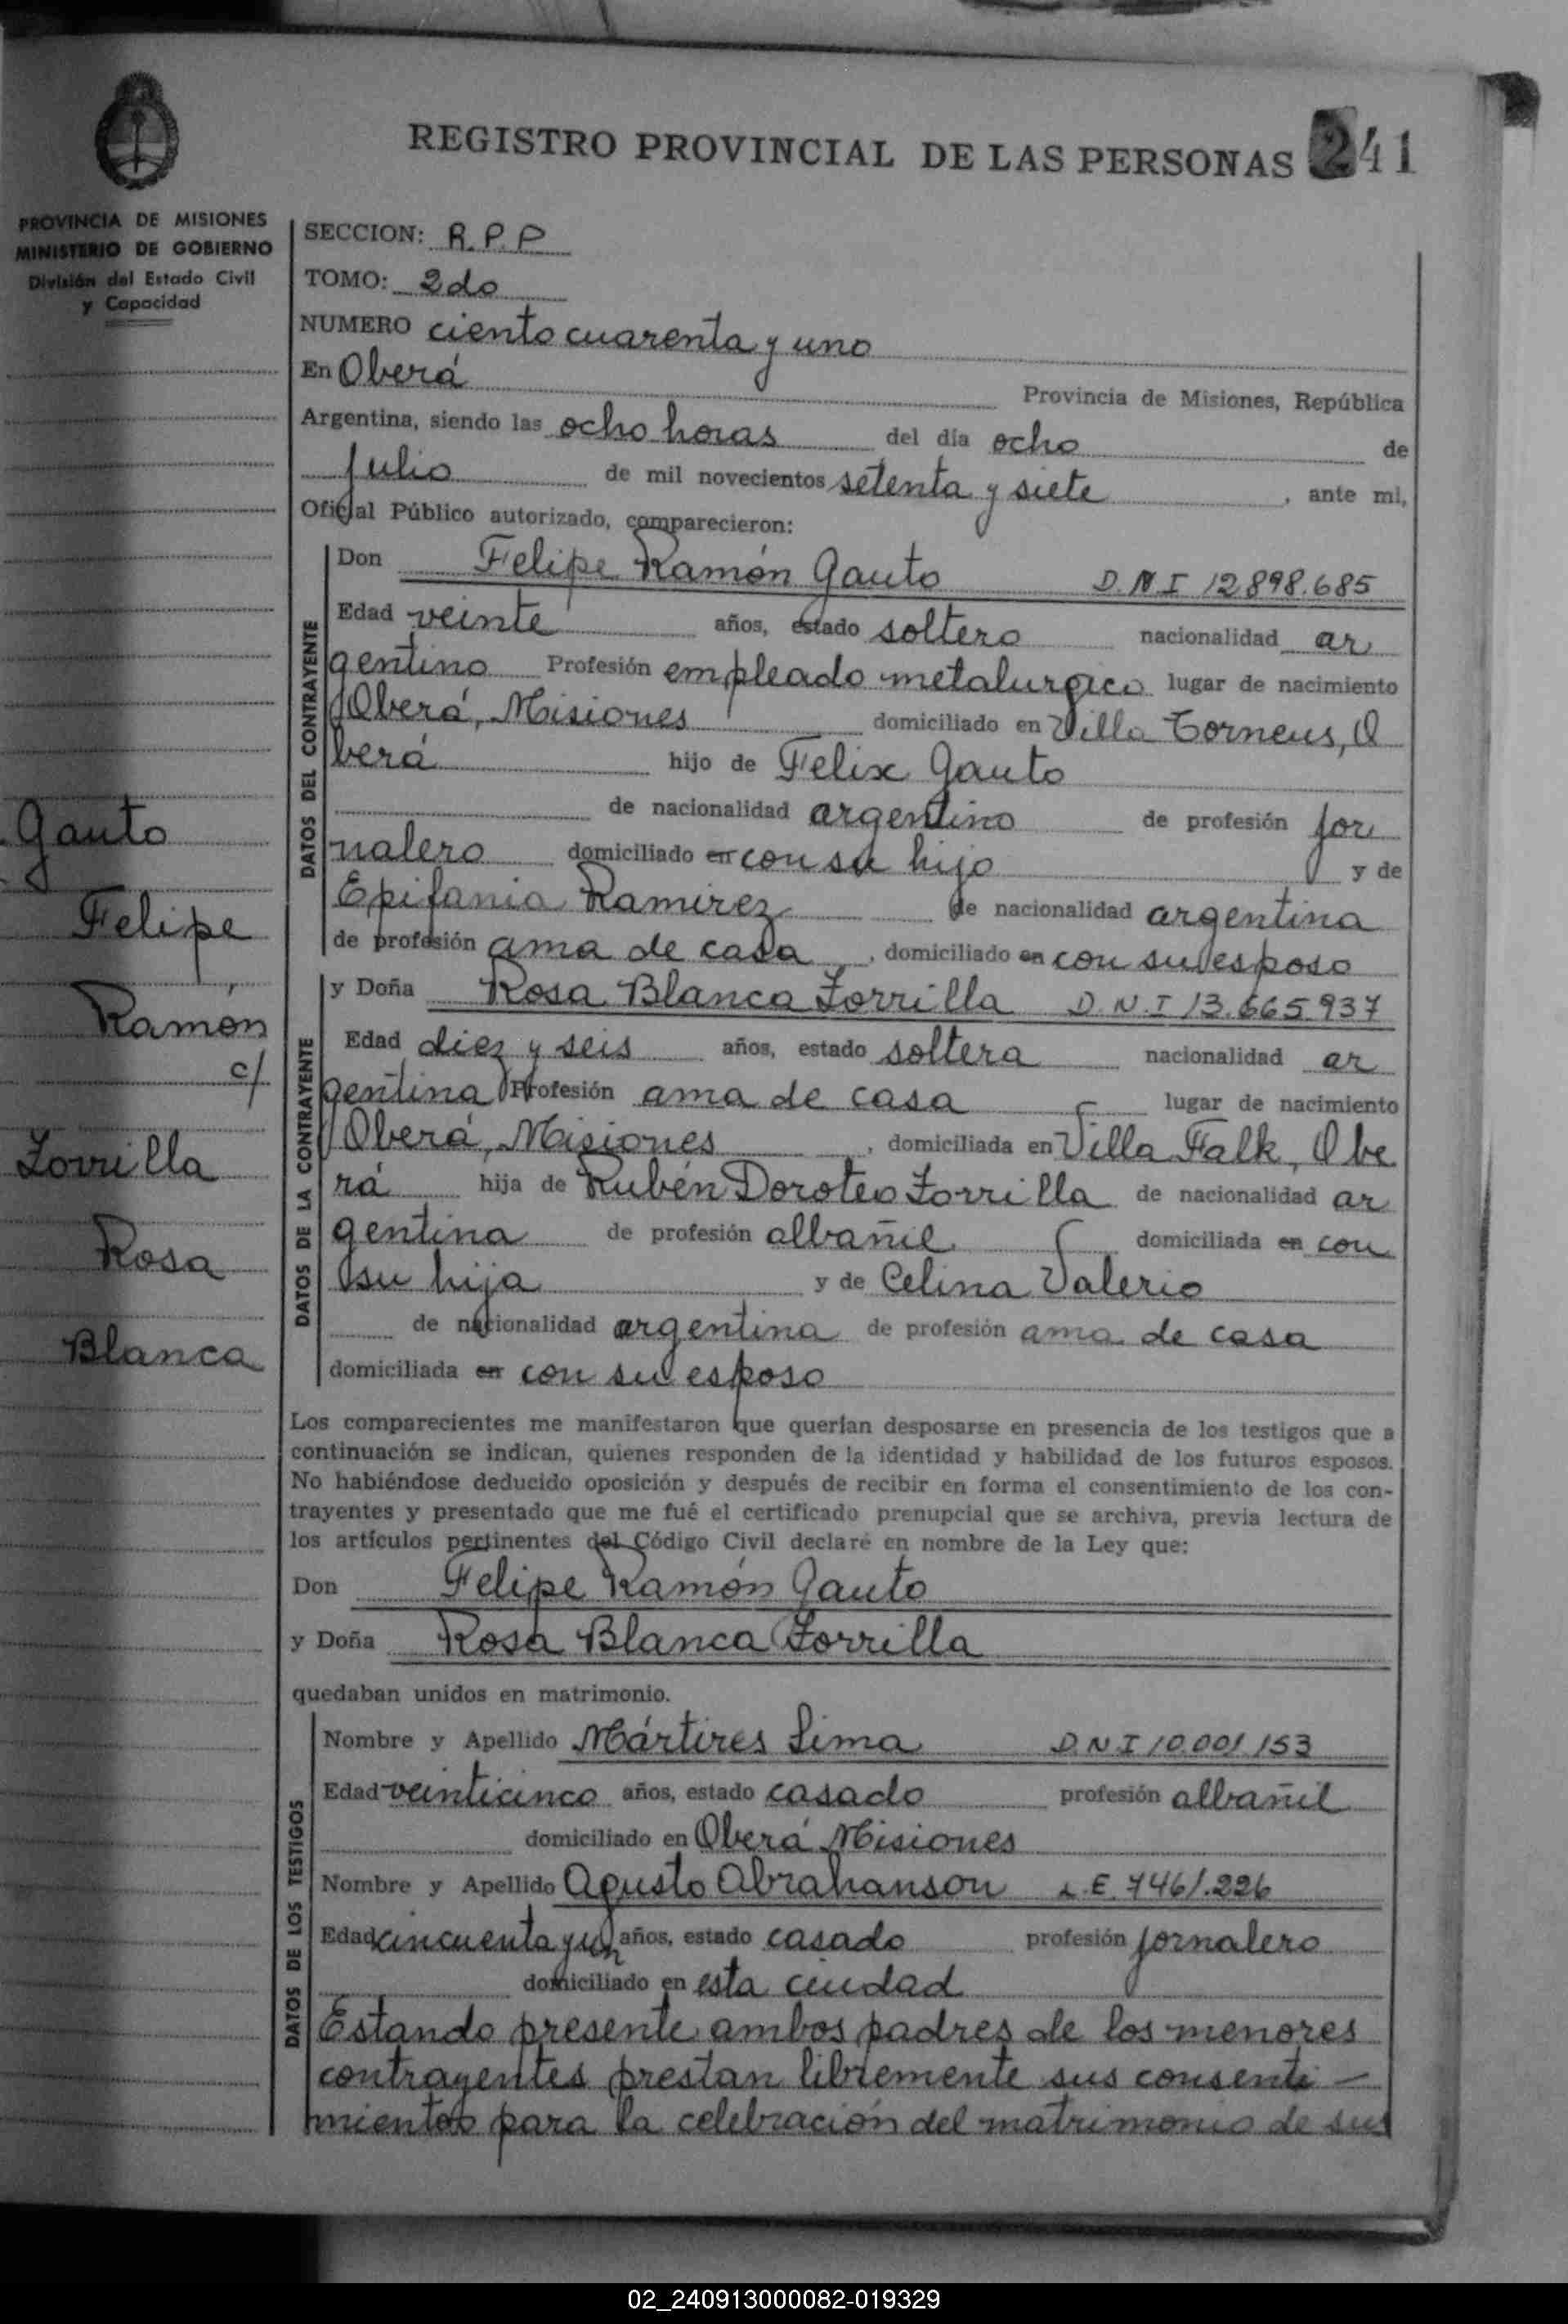 REGISTRO PROVINCIAL DE LAS PERSONAS 241
PROVINCIA DE MISIONES
MINISTERIO DE GOBIERNO
División del Estado Civil
y Capacidad
Gauto
Felipe
Ramón
c/
Zorrilla
Rosa
Blanca
SECCION: R.P.P
TOMO: 2do
NUMERO ciento cuarenta y uno
En Oberá Provincia de Misiones, República
Argentina, siendo las ocho horas del día ocho de
Julio de mil novecientos setenta y siete, ante mi,
Oficial Público autorizado, comparecieron:
DATOS DEL CONTRAYENTE
Don Felipe Ramón Gauto D.N.I 12.898.685
Edad veinte años, estado soltero nacionalidad ar
gentino Profesión empleado metalurgico lugar de nacimiento
Oberá, Misiones domiciliado en Villa Torneus, O
berá hijo de Felix Gauto
de nacionalidad argentino de profesión jor
nalero domiciliado en con su hijo y de
Epifania Ramirez de nacionalidad argentina
de profesión ama de casa, domiciliado en con su esposo
DATOS DE LA CONTRAYENTE
y Doña Rosa Blanca Zorrilla D.N.I 13.665.937
Edad diez y seis años, estado soltera nacionalidad ar
gentina Profesión ama de casa lugar de nacimiento
Oberá, Misiones, domiciliada en Villa Falk, Obe
rá hija de Rubén Doroteo Zorrilla de nacionalidad ar
gentina de profesión albañil domiciliada en con
su hija y de Celina Valerio
de nacionalidad argentina de profesión ama de casa
domiciliada en con su esposo
Los comparecientes me manifestaron que querían desposarse en presencia de los testigos que a
continuación se indican, quienes responden de la identidad y habilidad de los futuros esposos.
No habiéndose deducido oposición y después de recibir en forma el consentimiento de los con-
trayentes y presentado que me fué el certificado prenupcial que se archiva, previa lectura de
los artículos pertinentes del Código Civil declaré en nombre de la Ley que:
Don Felipe Ramón Gauto
y Doña Rosa Blanca Zorrilla
quedaban unidos en matrimonio.
DATOS DE LOS TESTIGOS
Nombre y Apellido Mártires Lima D.N.I 10.001.153
Edad veinticinco años, estado casado profesión albañil
domiciliado en Oberá Misiones
Nombre y Apellido Agusto Abrahanson L.E. 7461.226
Edad cincuenta y un años, estado casado profesión jornalero
domiciliado en esta ciudad
Estando presente ambos padres de los menores
contrayentes prestan libremente sus consenti-
mientos para la celebración del matrimonio de sus
02_240913000082-019329